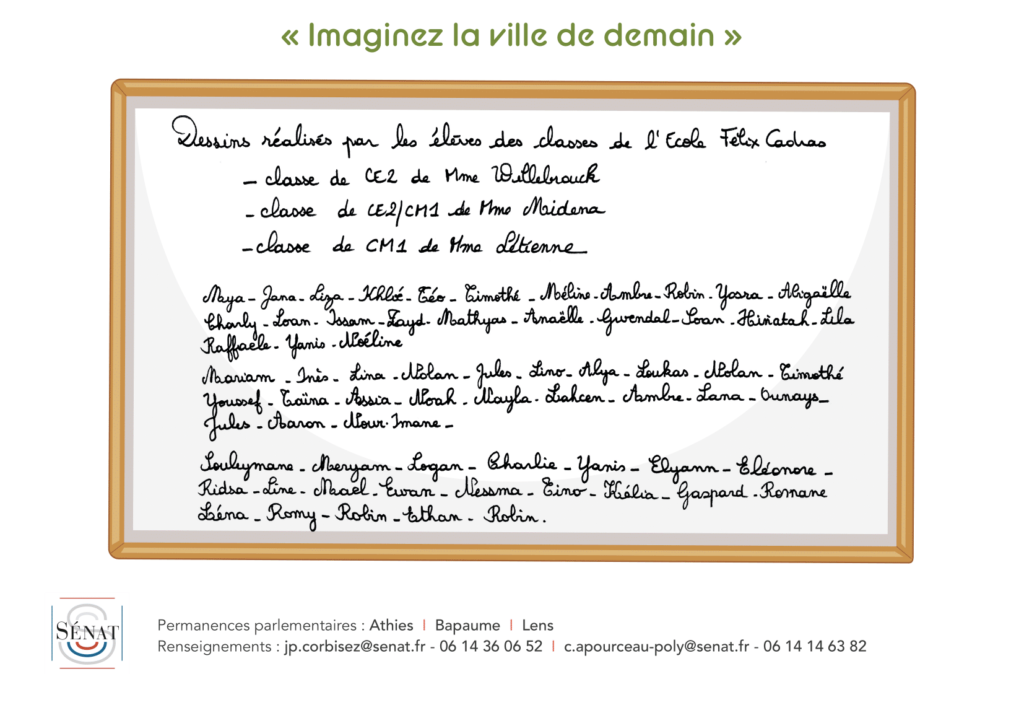 « Imaginez la ville de demain »
Dessins réalisés par les élèves des classes de l'Ecole Félix Cadras
- classe de CE2 de Mme Willebrouck
- classe de CE2/CM1 de Mme Midena
- classe de CM1 de Mme Létienne
Naya - Jana - Liza - Khloé - Téo - Timothé - Méline - Ambre - Robin - Yosra - Abigaëlle
Charly - Loan - Issam - Zayd - Mathyas - Anaëlle - Gwendal - Soan - Hinatah - Lila
Raffaele - Yanis - Noéline
Mariam - Inès - Lina - Nolan - Jules - Lino - Alya - Loukas - Nolan - Timothé
Youssef - Taïna - Assia - Noah - Nayla - Lahcen - Ambre - Lana - Ounays -
Jules - Aaron - Nour-Imane -
Souleymane - Meryam - Logan - Charlie - Yanis - Elyann - Eléonore -
Ridsa - Line - Maël - Ewan - Nessma - Tino - Kélia - Gaspard - Romane
Léna - Romy - Robin - Ethan - Robin.
SÉNAT
Permanences parlementaires : Athies | Bapaume | Lens
Renseignements : jp.corbisez@senat.fr - 06 14 36 06 52 | c.apourceau-poly@senat.fr - 06 14 14 63 82